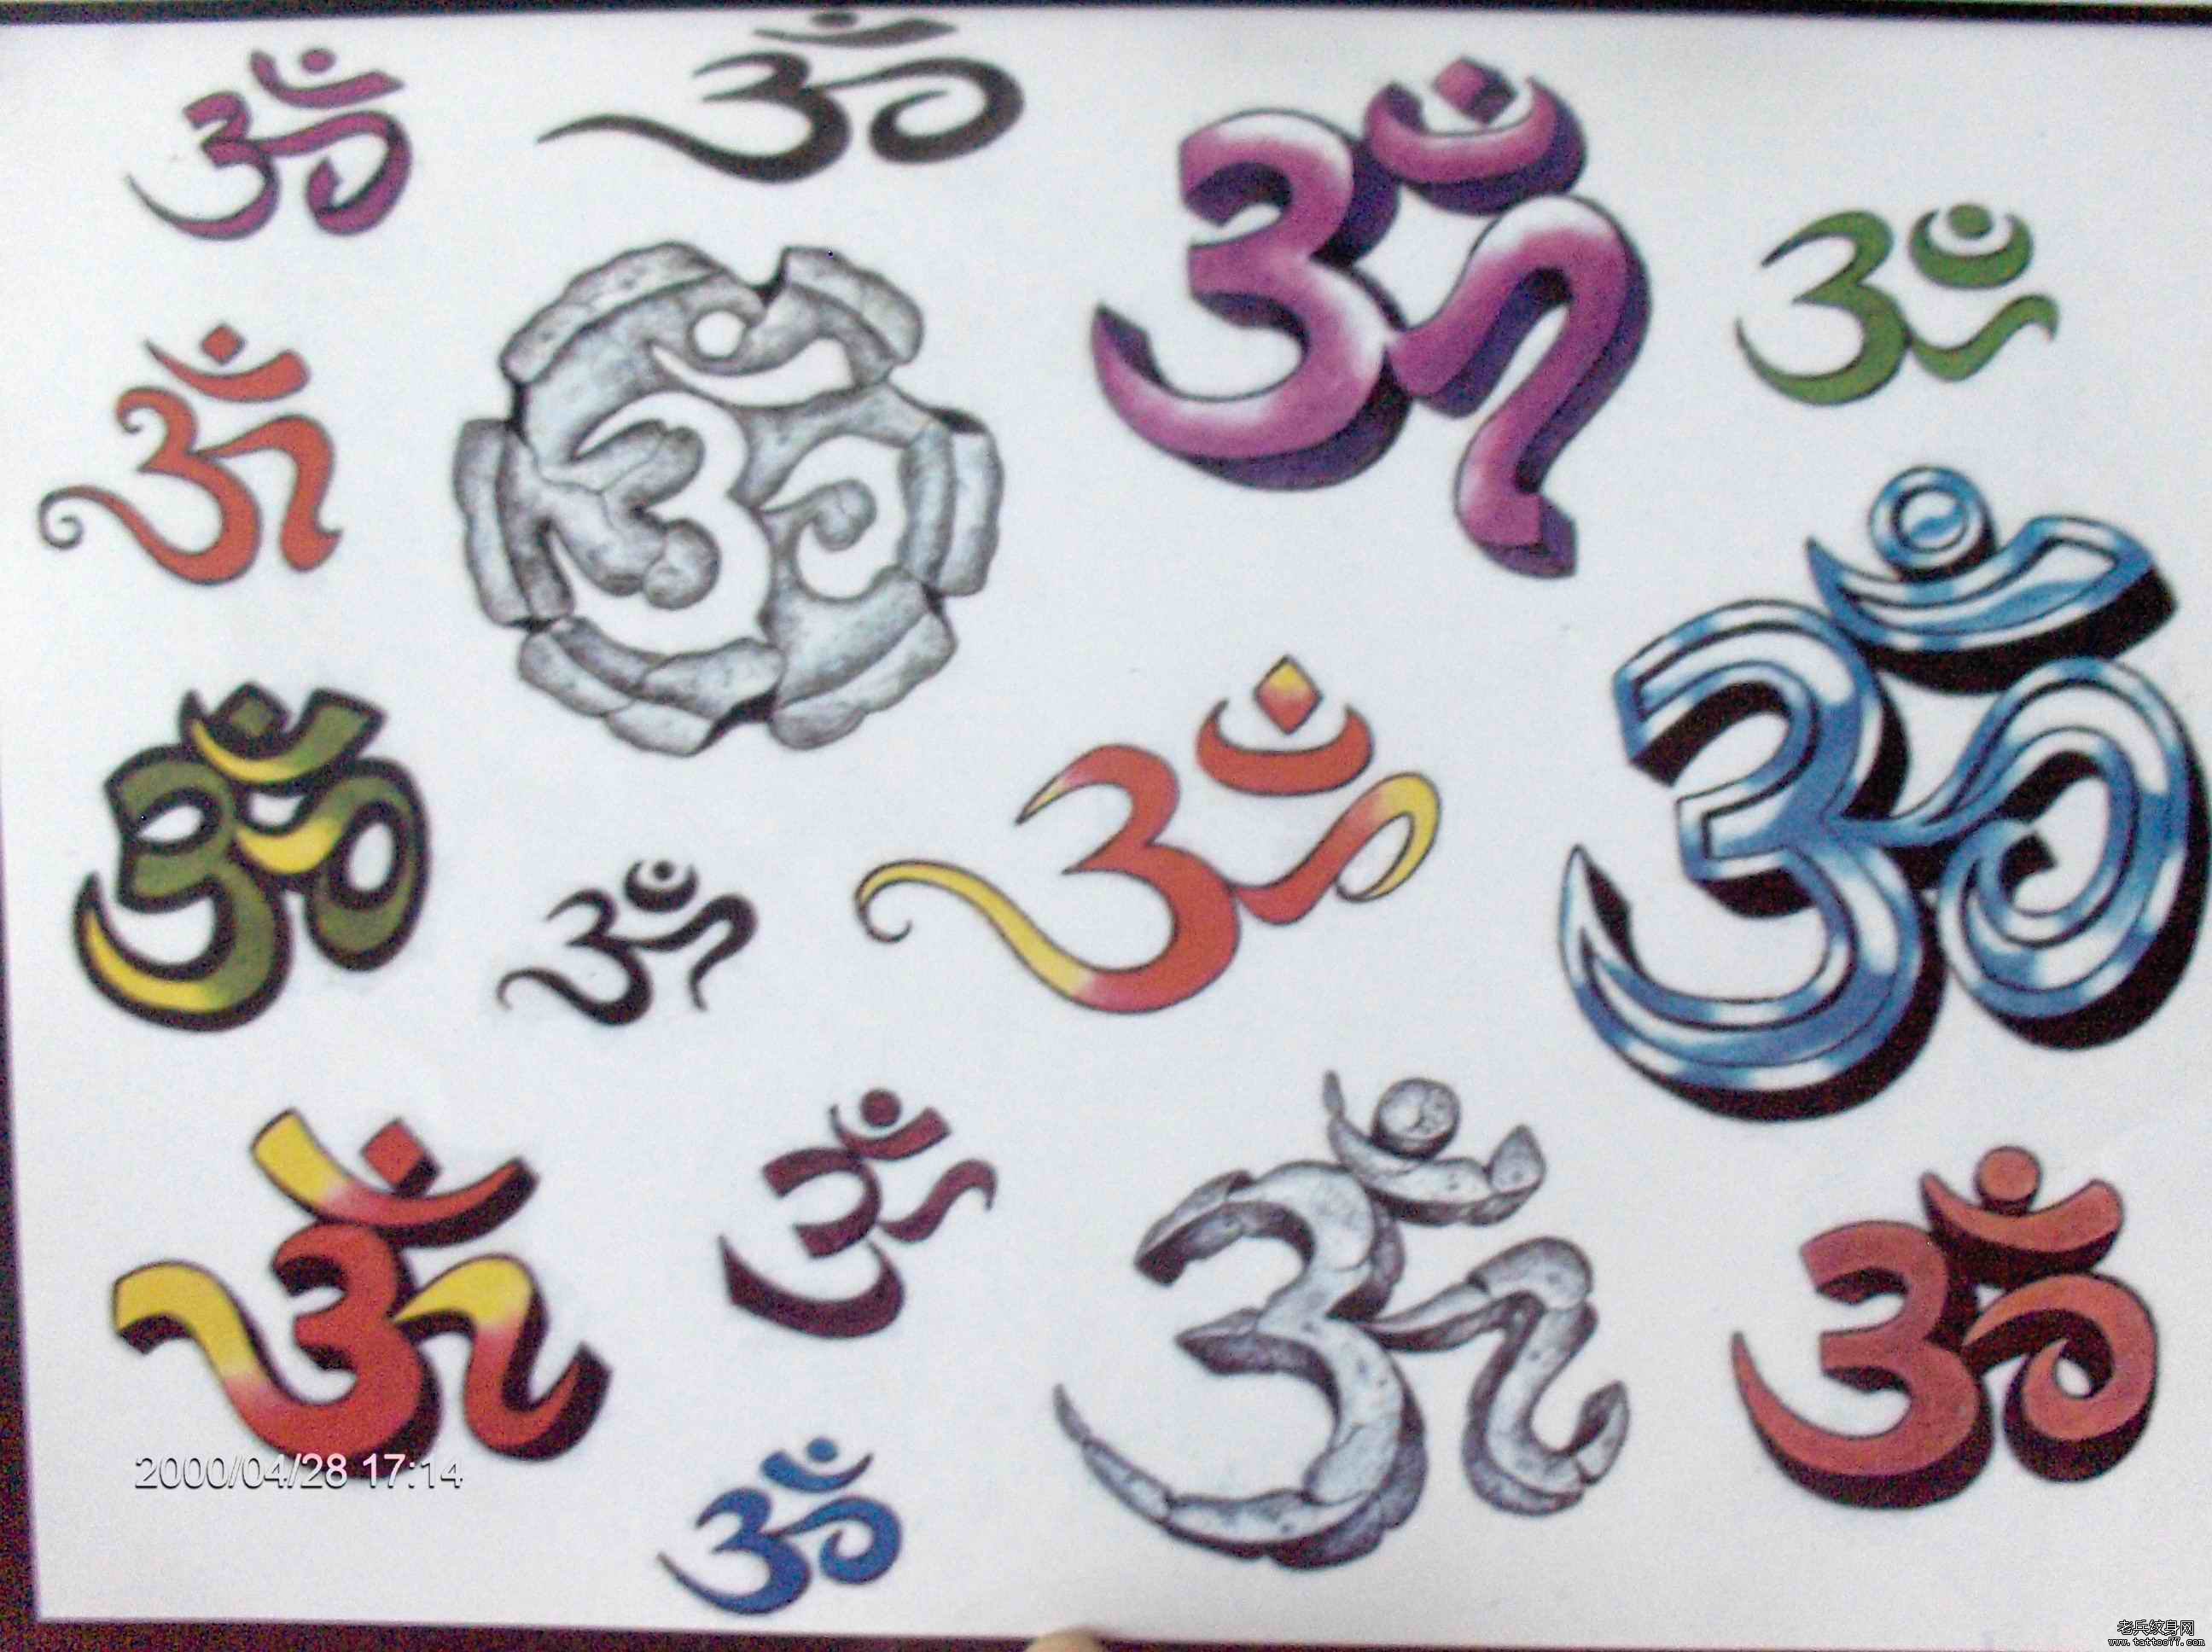 ॐ ॐ ॐ ॐ
ॐ ॐ
ॐ ॐ
ॐ ॐ ॐ
ॐ ॐ ॐ ॐ
ॐ
2000/04/28 17:14
老兵纹身网
www.tattoo77.com